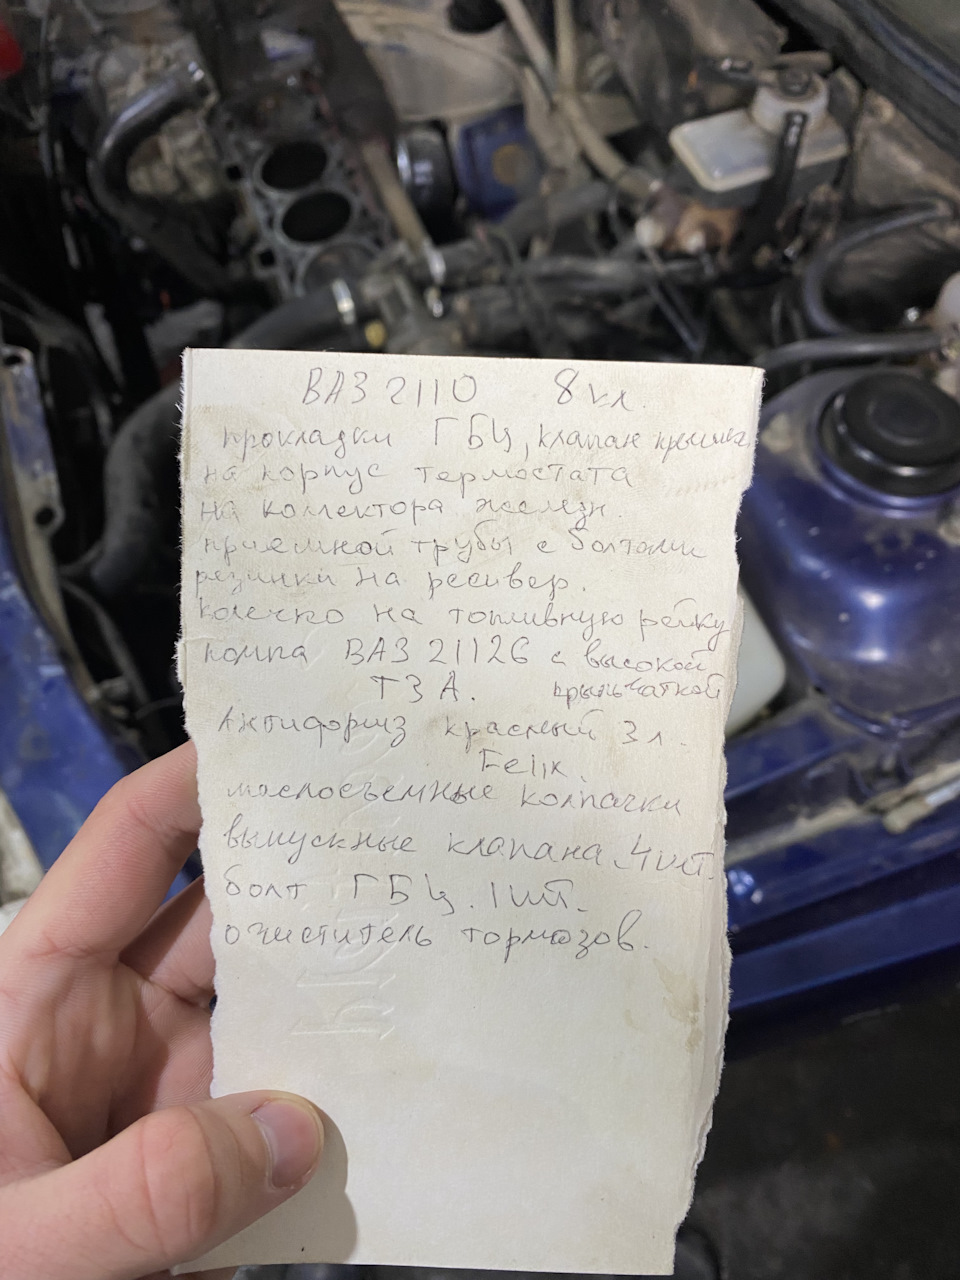 ВАЗ 2110 8 кл.
прокладки ГБЦ, клапан крышка
на корпус термостата
на коллектора железн.
приёмной трубы с болтами
резинки на ресивер.
колечко на топливную рейку
помпа ВАЗ 21126 с высокой
ТЗА. крыльчаткой
Антифриз красный 3 л.
Felix.
маслосъёмные колпачки
выпускные клапана 4 шт.
болт ГБЦ. 1 шт.
очиститель тормозов.